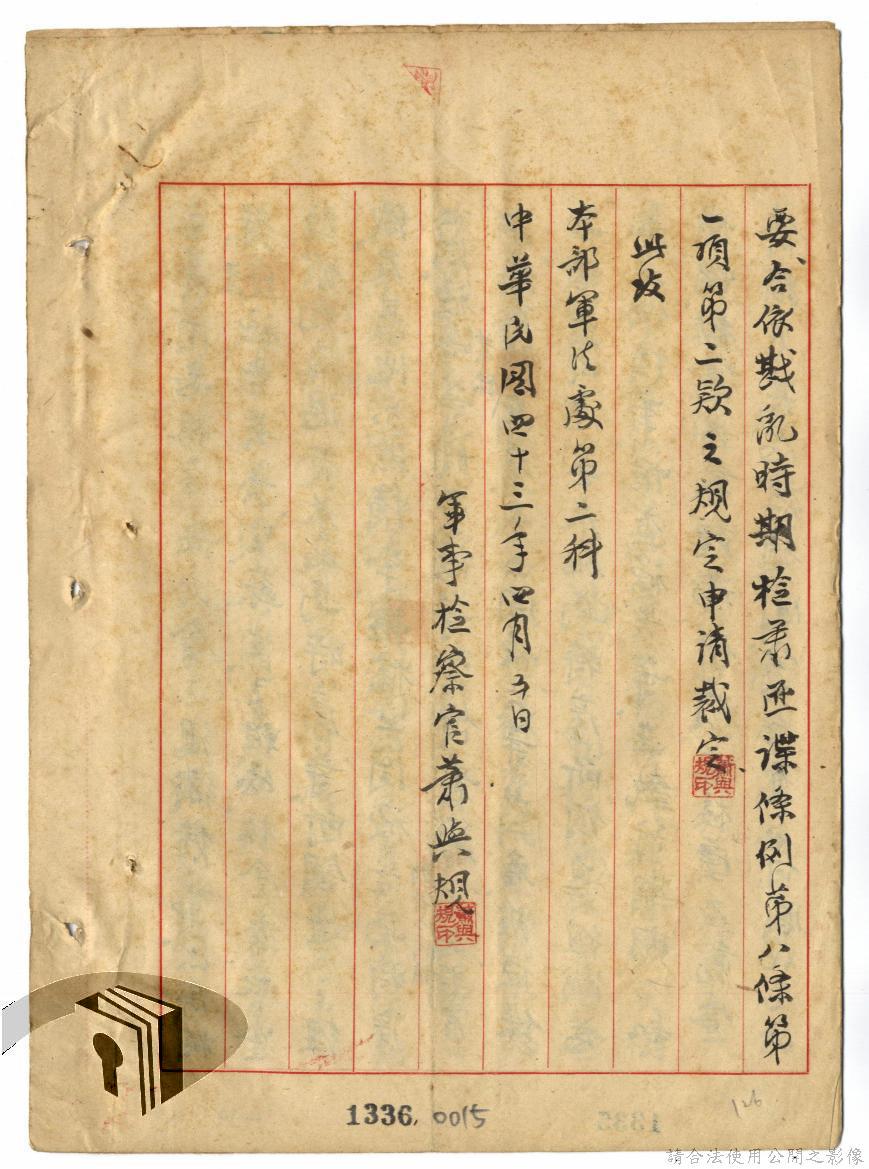 要、合依戡亂時期檢肅匪諜條例第八條第
一項第二款之規定申請裁定、
此致
本部軍法處第二科
中華民國四十三年四月五日
軍事檢察官蕭與規
蕭與規印
蕭與規印
1336.0015
126
請合法使用公開之影像